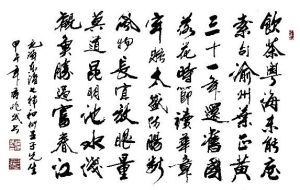 飲茶粵海未能忘
索句渝州葉正黃
三十一年還舊國
落花時節讀華章
牢騷太盛防腸斷
風物長宜放眼量
莫道昆明池水淺
觀魚勝過富春江
七律和柳亞子先生
甲午年